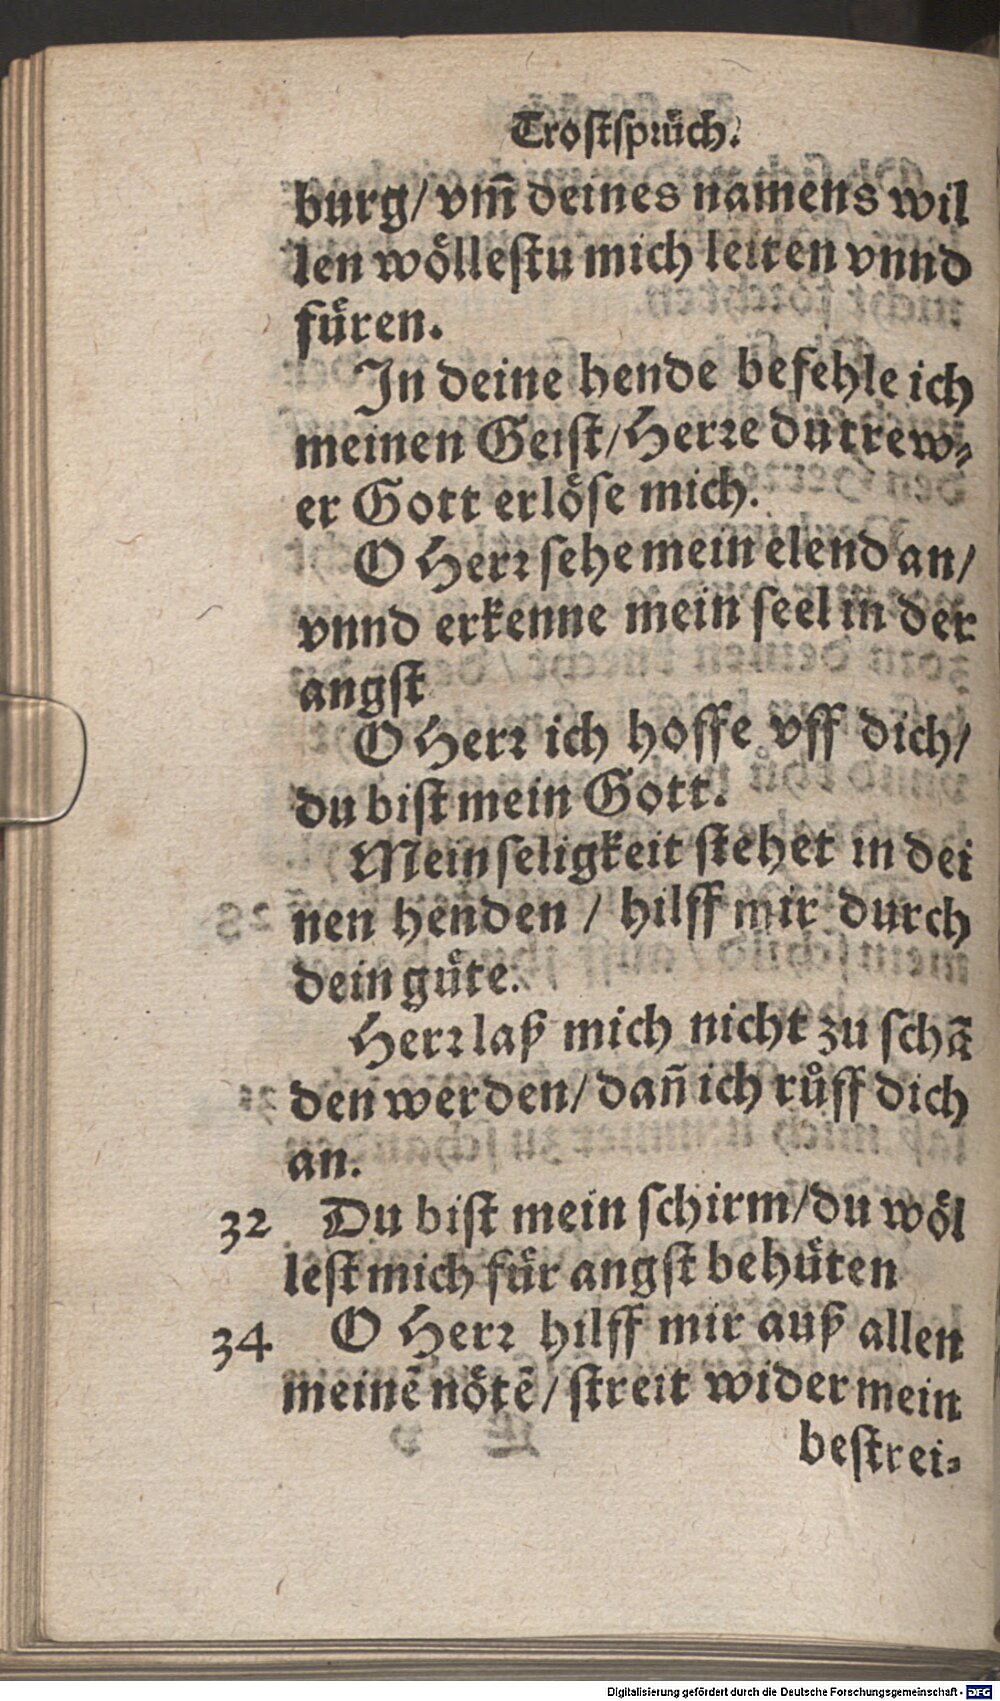 Trostsprüch.
burg/ vm̄ deines namens wil
len wöllestu mich leiten vnnd
füren.
In deine hende befehle ich
meinen Geist/Herre du trew⸗
er Gott erlöse mich.
O Herr sehe mein elend an/
vnnd erkenne mein seel in der
angst
O Herr ich hoffe vff dich/
du bist mein Gott.
Mein seligkeit stehet in dei
nen henden / hilff mir durch
dein güte.
Herr laß mich nicht zu schā
den werden/ dañ ich růff dich
an.
32 Du bist mein schirm/du wöl
lest mich für angst behüten
34 O Herr hilff mir auß allen
meinē nötē/ streit wider mein
bestrei⸗
Digitalisierung gefördert durch die Deutsche Forschungsgemeinschaft - DFG